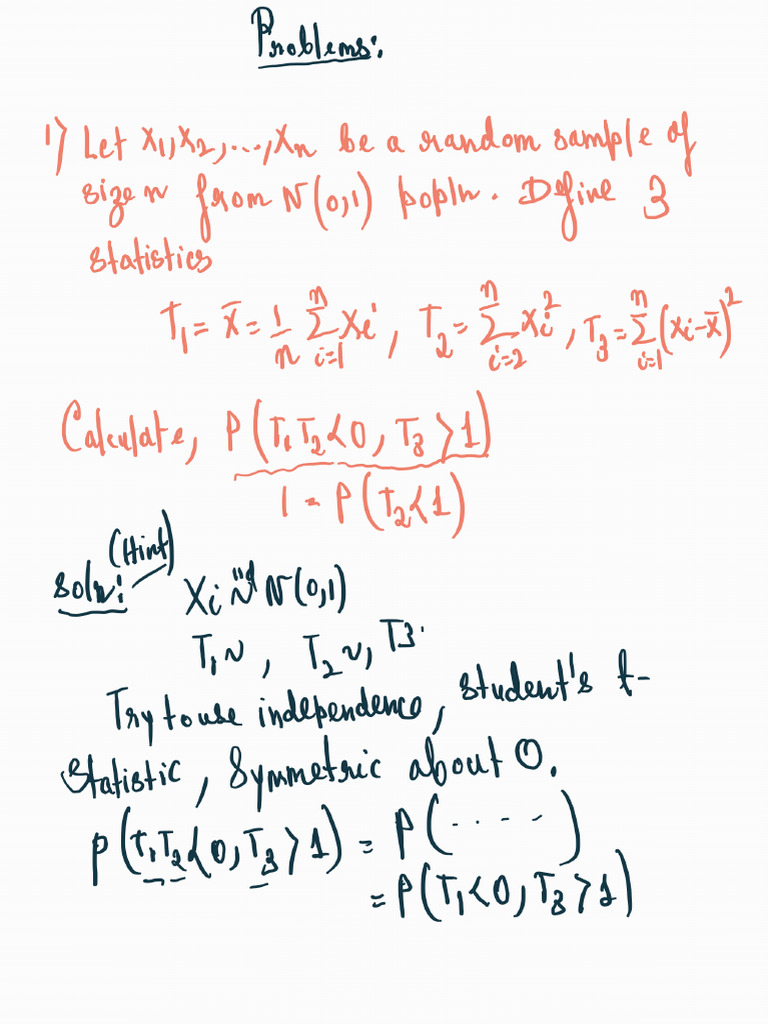 Problems:
1) Let X₁, X₂, ..., Xₙ be a random sample of
size n from N(0,1) popln. Define 3
statistics
T₁ = x̄ = 1/n Σ_{i=1}^{n} Xi, T₂ = Σ_{i=2}^{n} Xi², T₃ = Σ_{i=1}^{n} (Xi-x̄)²
Calculate, P(T₁T₂<0, T₃>1)
1 - P(T₂<1)
(Hint)
soln:
Xi ~iid N(0,1)
T₁ ~ , T₂ ~, T3.
Try to use independence, student's t-
statistic, Symmetric about 0.
P(T₁T₂<0, T₃>1) = P(.....)
= P(T₁<0, T₃>1)